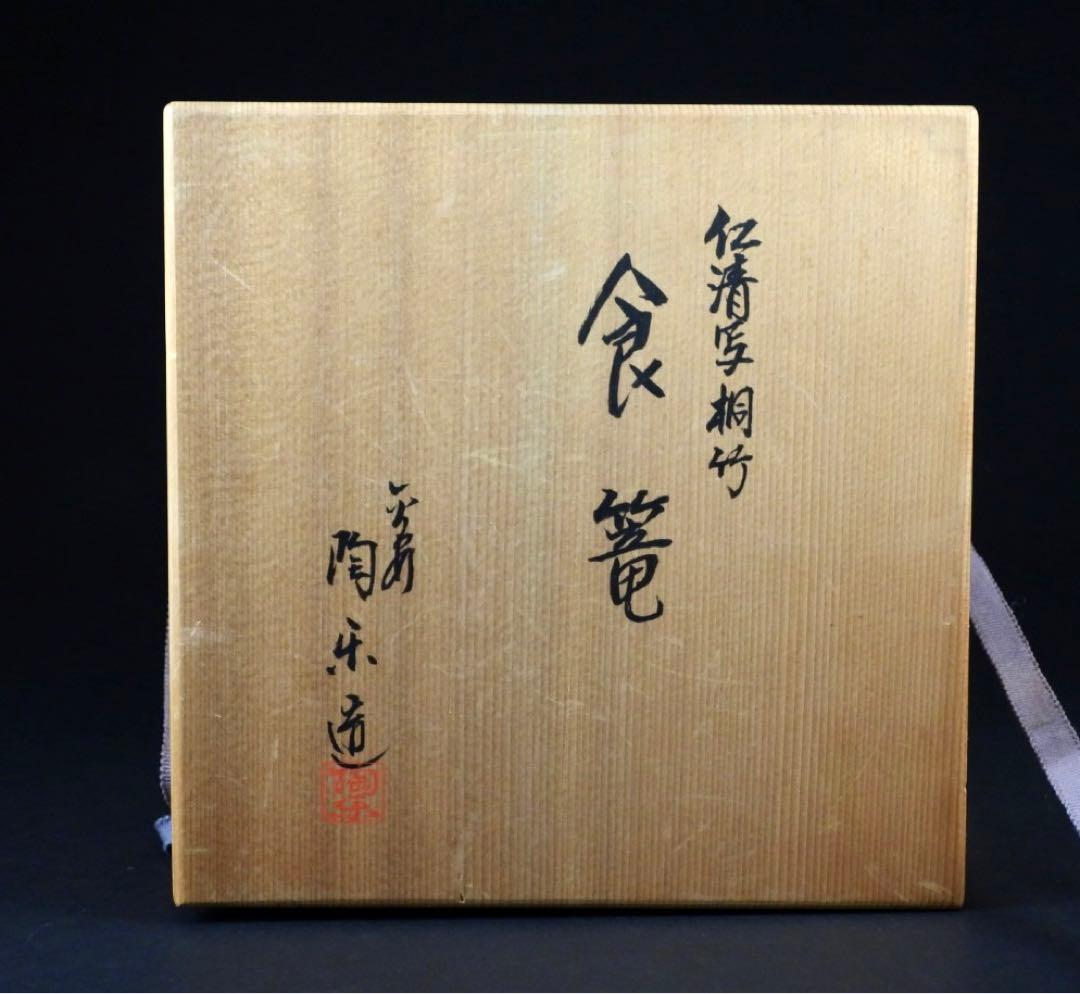 仁清写桐竹
食篭
平安
陶楽造
陶楽